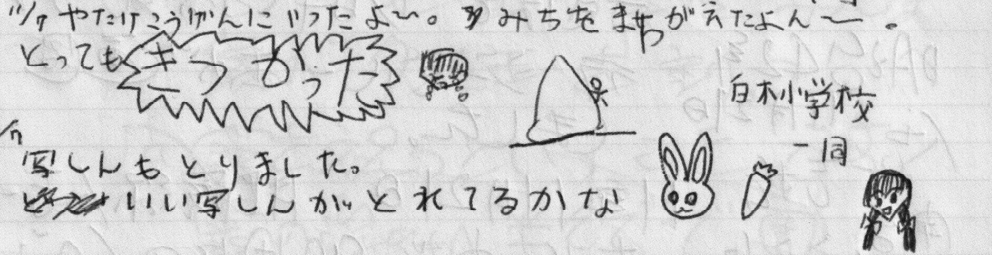 やたけこうげんにいったよ〜。みちをまちがえたよん〜。
とってもきつかった
白木小学校
一同
写しんもとりました。
いい写しんがとれてるかな